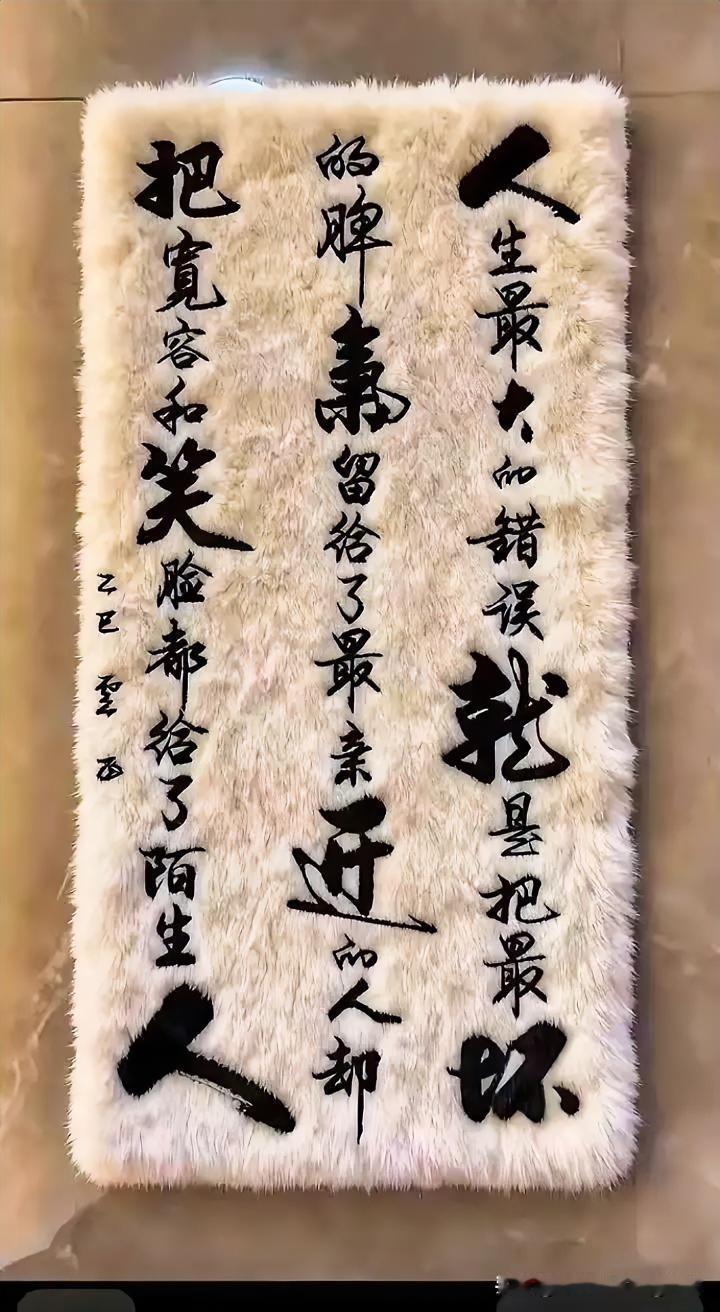 人生最大的錯误就是把最坏
的脾氣留给了最亲近的人却
把寬容和笑脸都给了陌生人
乙巳 雲